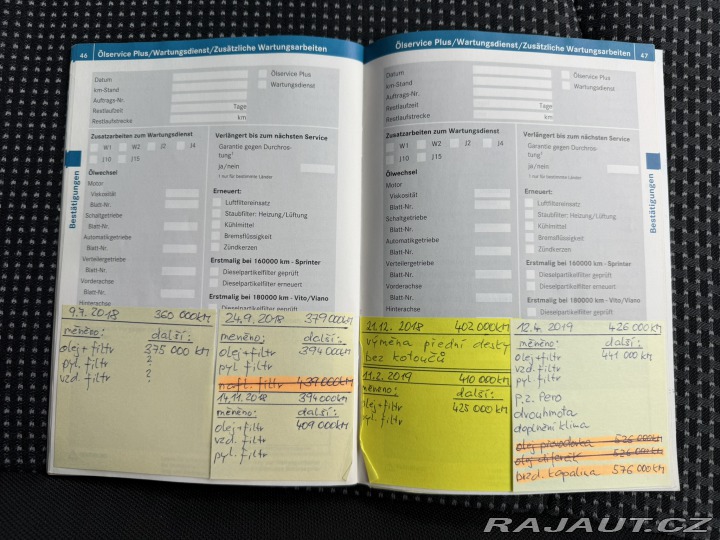 46 Ölservice Plus/Wartungsdienst/Zusätzliche Wartungsarbeiten
Datum
km-Stand
Auftrags-Nr.
Restlaufzeit Tage
Restlaufstrecke km
Ölservice Plus
Wartungsdienst
Zusatzarbeiten zum Wartungsdienst
W1 W2 J2 J4
J10 J15
Ölwechsel
Motor
Viskosität
Blatt-Nr.
Schaltgetriebe
Blatt-Nr.
Automatikgetriebe
Blatt-Nr.
Verteilergetriebe
Blatt-Nr.
Vorderachse
Blatt-Nr.
Hinterachse
Verlängert bis zum nächsten Service
Garantie gegen Durchros-
tung¹
ja/nein
1 nur für bestimmte Länder
Erneuert:
Luftfiltereinsatz
Staubfilter: Heizung/Lüftung
Kühlmittel
Bremsflüssigkeit
Zündkerzen
Erstmalig bei 160000 km - Sprinter
Dieselpartikelfilter geprüft
Dieselpartikelfilter erneuert
Erstmalig bei 180000 km - Vito/Viano
Dieselpartikelfilter geprüft
Bestätigungen
9.7. 2018 360 000km
měněno: další:
olej+filtr 375 000 km
pyl. filtr ?
vzd. filtr ?
24.9. 2018 379 000km
měněno: další:
olej+filtr 394 000km
pyl filtr
naft. filtr 439 000km
14.11. 2018 394 000km
měněno: další:
olej+filtr 409 000km
vzd. filtr
pyl. filtr
Ölservice Plus/Wartungsdienst/Zusätzliche Wartungsarbeiten 47
Datum
km-Stand
Auftrags-Nr.
Restlaufzeit Tage
Restlaufstrecke km
Ölservice Plus
Wartungsdienst
Zusatzarbeiten zum Wartungsdienst
W1 W2 J2 J4
J10 J15
Ölwechsel
Motor
Viskosität
Blatt-Nr.
Schaltgetriebe
Blatt-Nr.
Automatikgetriebe
Blatt-Nr.
Verteilergetriebe
Blatt-Nr.
Vorderachse
Blatt-Nr.
Hinterachse
Verlängert bis zum nächsten Service
Garantie gegen Durchros-
tung¹
ja/nein
1 nur für bestimmte Länder
Erneuert:
Luftfiltereinsatz
Staubfilter: Heizung/Lüftung
Kühlmittel
Bremsflüssigkeit
Zündkerzen
Erstmalig bei 160000 km - Sprinter
Dieselpartikelfilter geprüft
Dieselpartikelfilter erneuert
Erstmalig bei 180000 km - Vito/Viano
Dieselpartikelfilter geprüft
Bestätigungen
21.12. 2018 402 000km
výměna přední desky
bez kotoučů
11.2. 2019 410 000km
měněno: další:
olej+filtr 425 000km
12.4. 2019 426 000km
měněno: další:
olej+filtr 441 000km
vzd. filtr
pyl. filtr
p.z. Pero
dvouhmota
doplnění klima
olej převodovka 526 000km
olej diferák 526 000km
brzd. kapalina 576 000km
RAJAUT.CZ